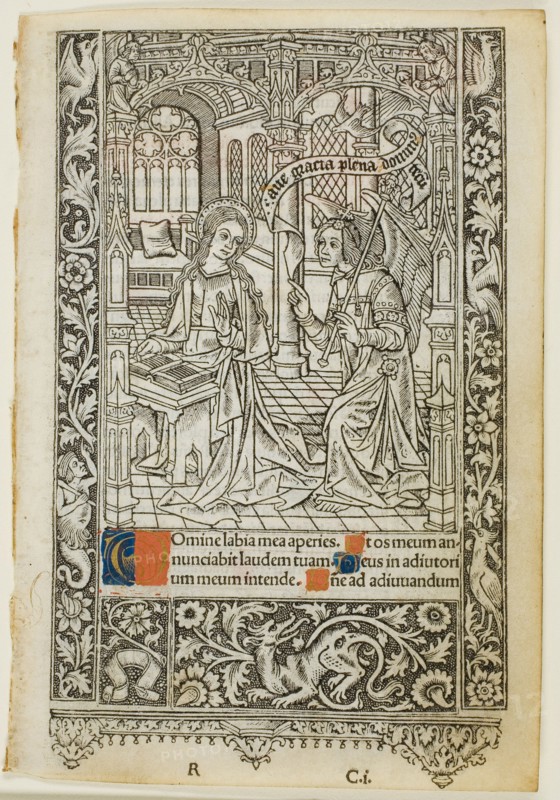 aue gracia plena domin tecū
Domine labia mea aperies. Et os meum an-
nunciabit laudem tuam. Deus in adiutori
um meum intende. Dñe ad adiuuandum
R
C.i.